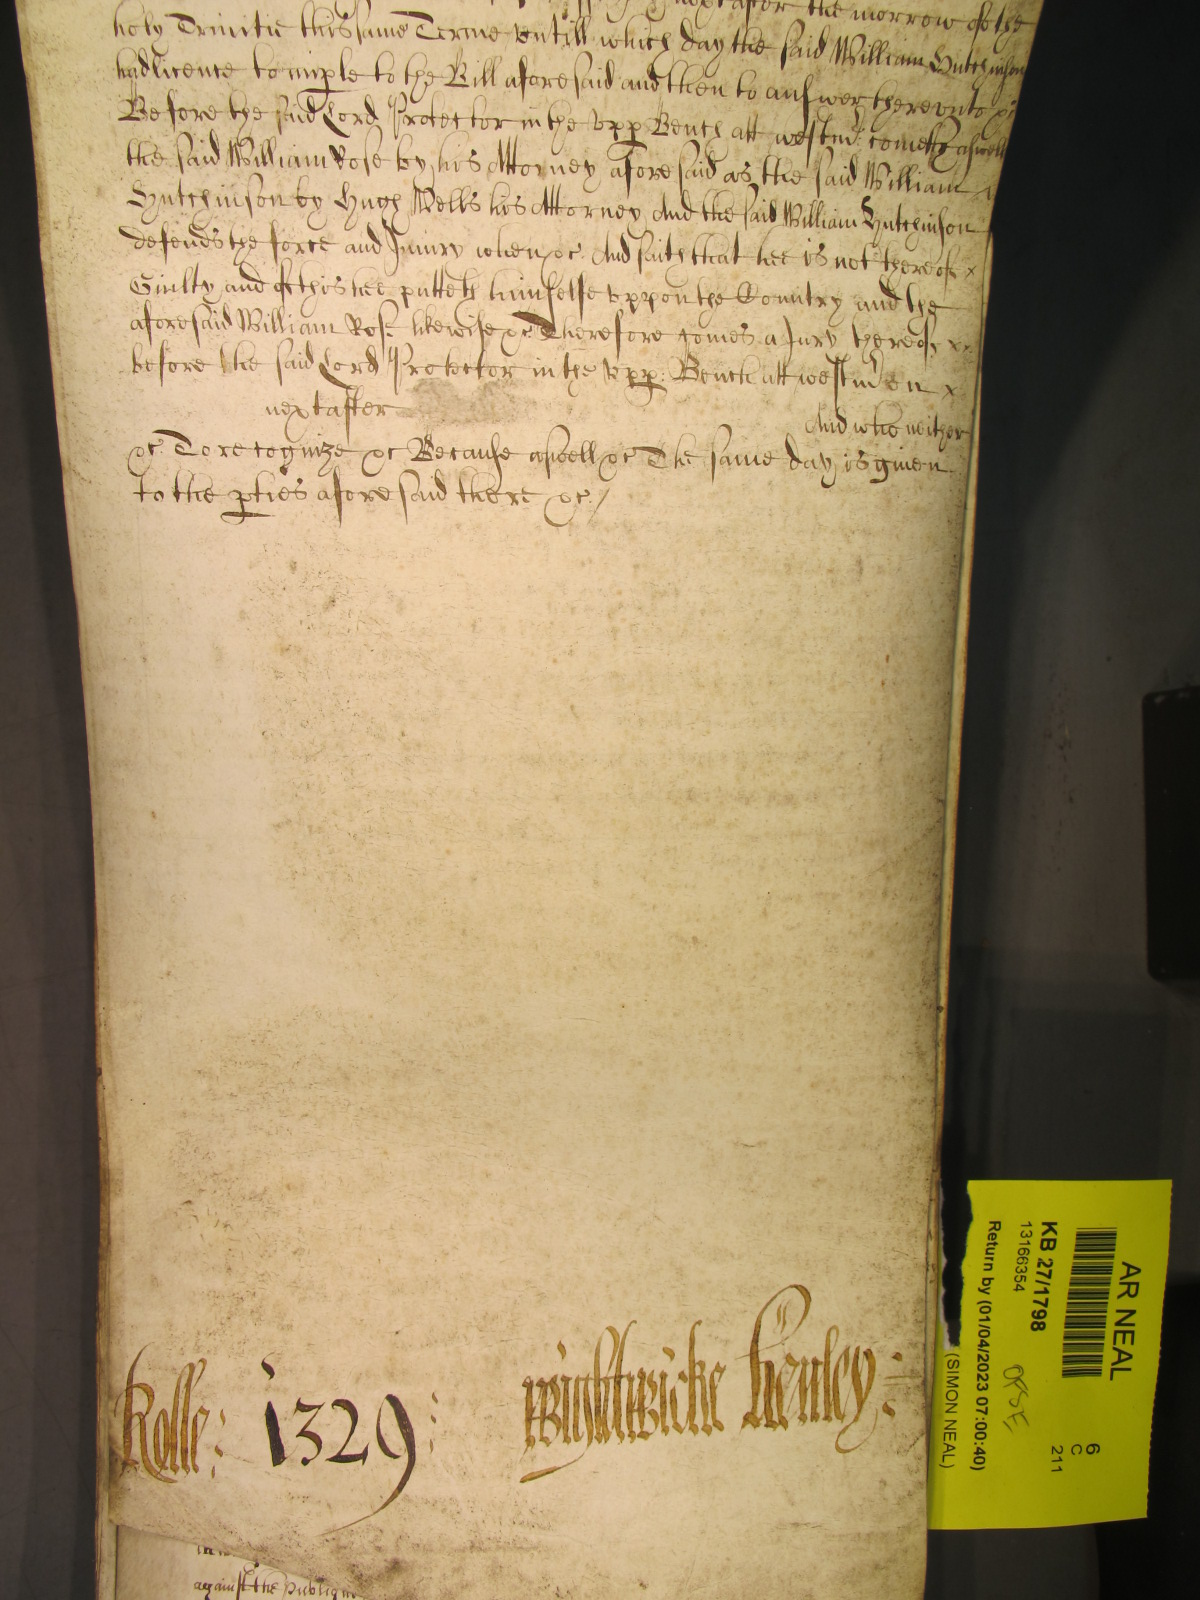 next after the morrow of the
holy Trinitie this same Terme untill which day the said William Hutchinson
had licence to imple to the Bill aforesaid and then to answer thereunto &c
Before the said Lord Protector in the upp Bench att westm: cometh aswell
the said William Rose by his Attorney aforesaid as the said William x
Hutchinson by Hugh Wells his Attorney And the said William Hutchinson
defends the force and Injury when &c And saith that hee is not thereof x
Guilty and of this hee putteth himselfe uppon the Country and the
aforesaid William Rose likewise &c Therefore comes a Jury thereof x
before the said Lord Protector in the upp: Bench att westm on x
next after And who neither
&c To recognize &c Because aswell &c The same day is given
to the pties aforesaid there &c /
Rolle: 1329: Wightwicke Henley:
against the publique
AR NEAL
KB 27/1798
13166354
Return by (01/04/2023 07:00:40)
(SIMON NEAL)
6
C
211